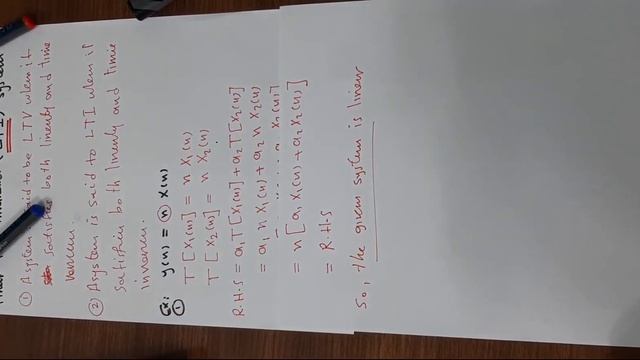 ① A system said to be LTV when it
satisfies both linearity and time
varient.
② A system is said to LTI when it
Satisfies both linearly and time
invarient.
Ex: y(n) = n x(n)
①
T[x1(n)] = n x1(n)
T[x2(n)] = n x2(n)
R.H.S = a1 T[x1(n)] + a2 T[x2(n)]
= a1 n x1(n) + a2 n x2(n)
= n[a1 x1(n) + a2 x2(n)]
= R.H.S
So, the given system is linear